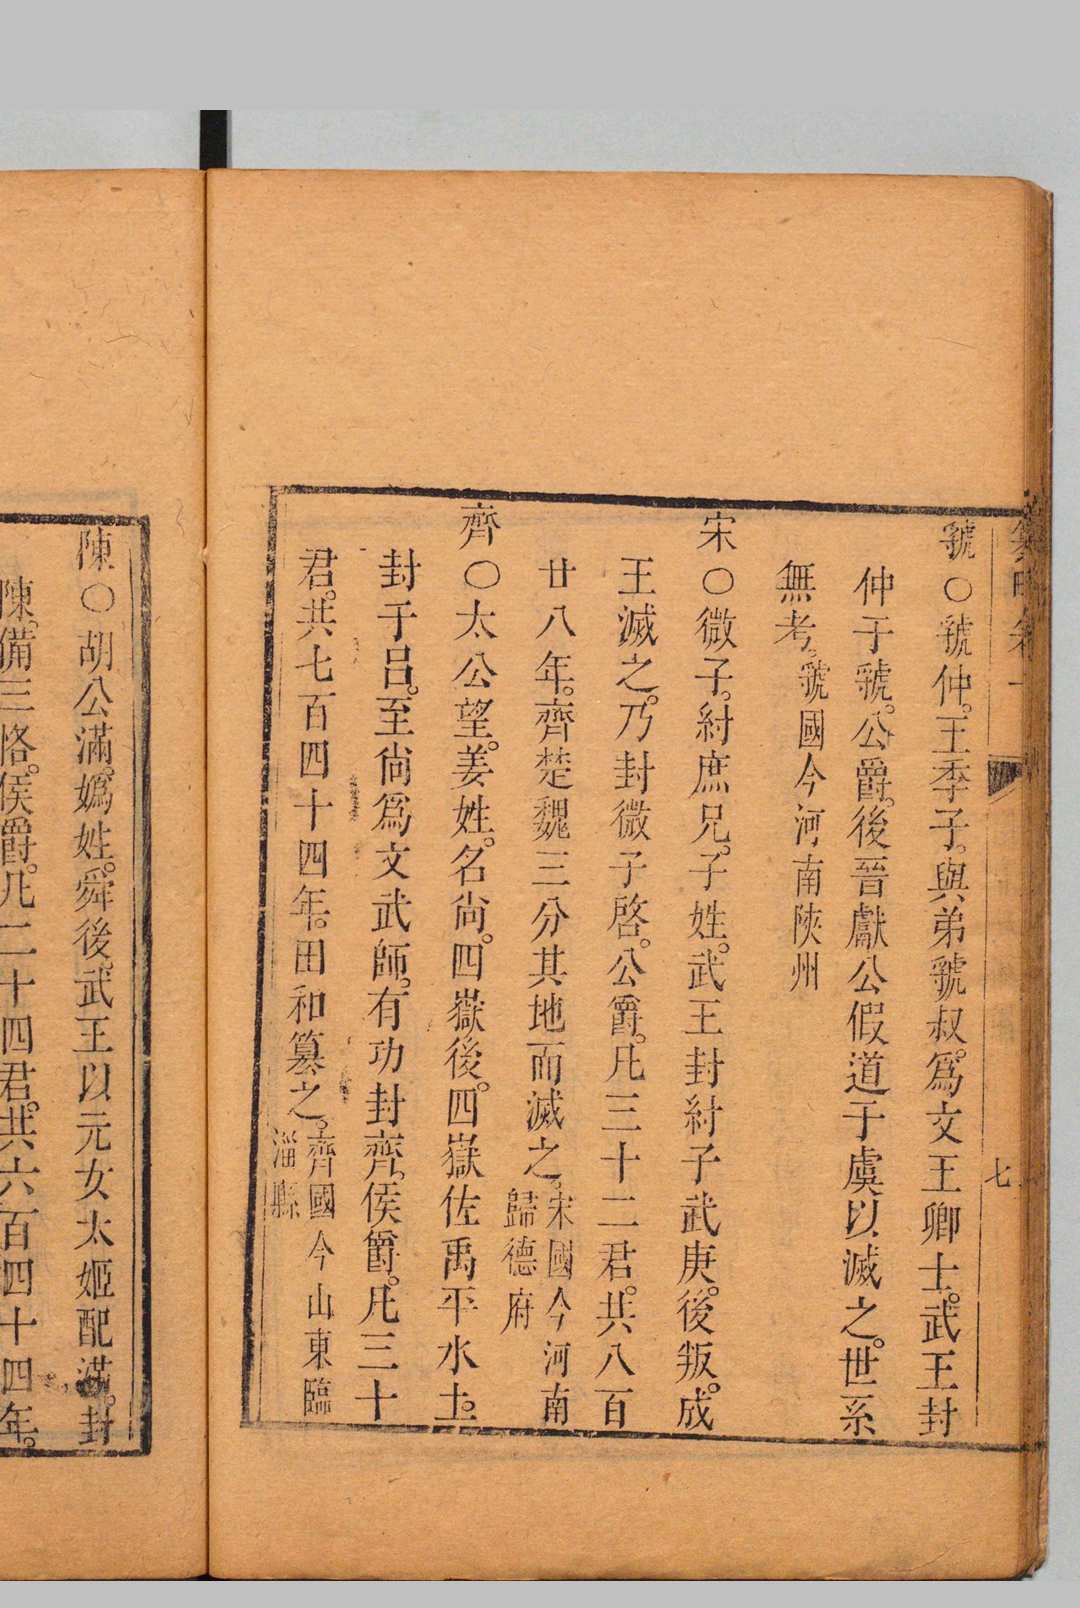 虢○虢仲。王季子。與弟虢叔。爲文王卿士。武王封
仲于虢。公爵。後晉獻公假道于虞以滅之。世系
無考。虢國今河南陝州
宋○微子。紂庶兄。子姓。武王封紂子武庚。後叛。成
王滅之。乃封微子啓。公爵。凡三十二君。共八百
廿八年。齊楚魏三分其地而滅之。宋國今河南
歸德府
齊○太公望。姜姓。名尙。四嶽後。四嶽佐禹平水土。
封于呂。至尙爲文武師。有功封齊。侯爵。凡三十
君。共七百四十四年。田和篡之。齊國今山東臨
淄縣
七
陳○胡公滿。嬀姓。舜後。武王以元女太姬配滿。封
陳。備三恪。侯爵。凡二十四君。共六百四十四年。